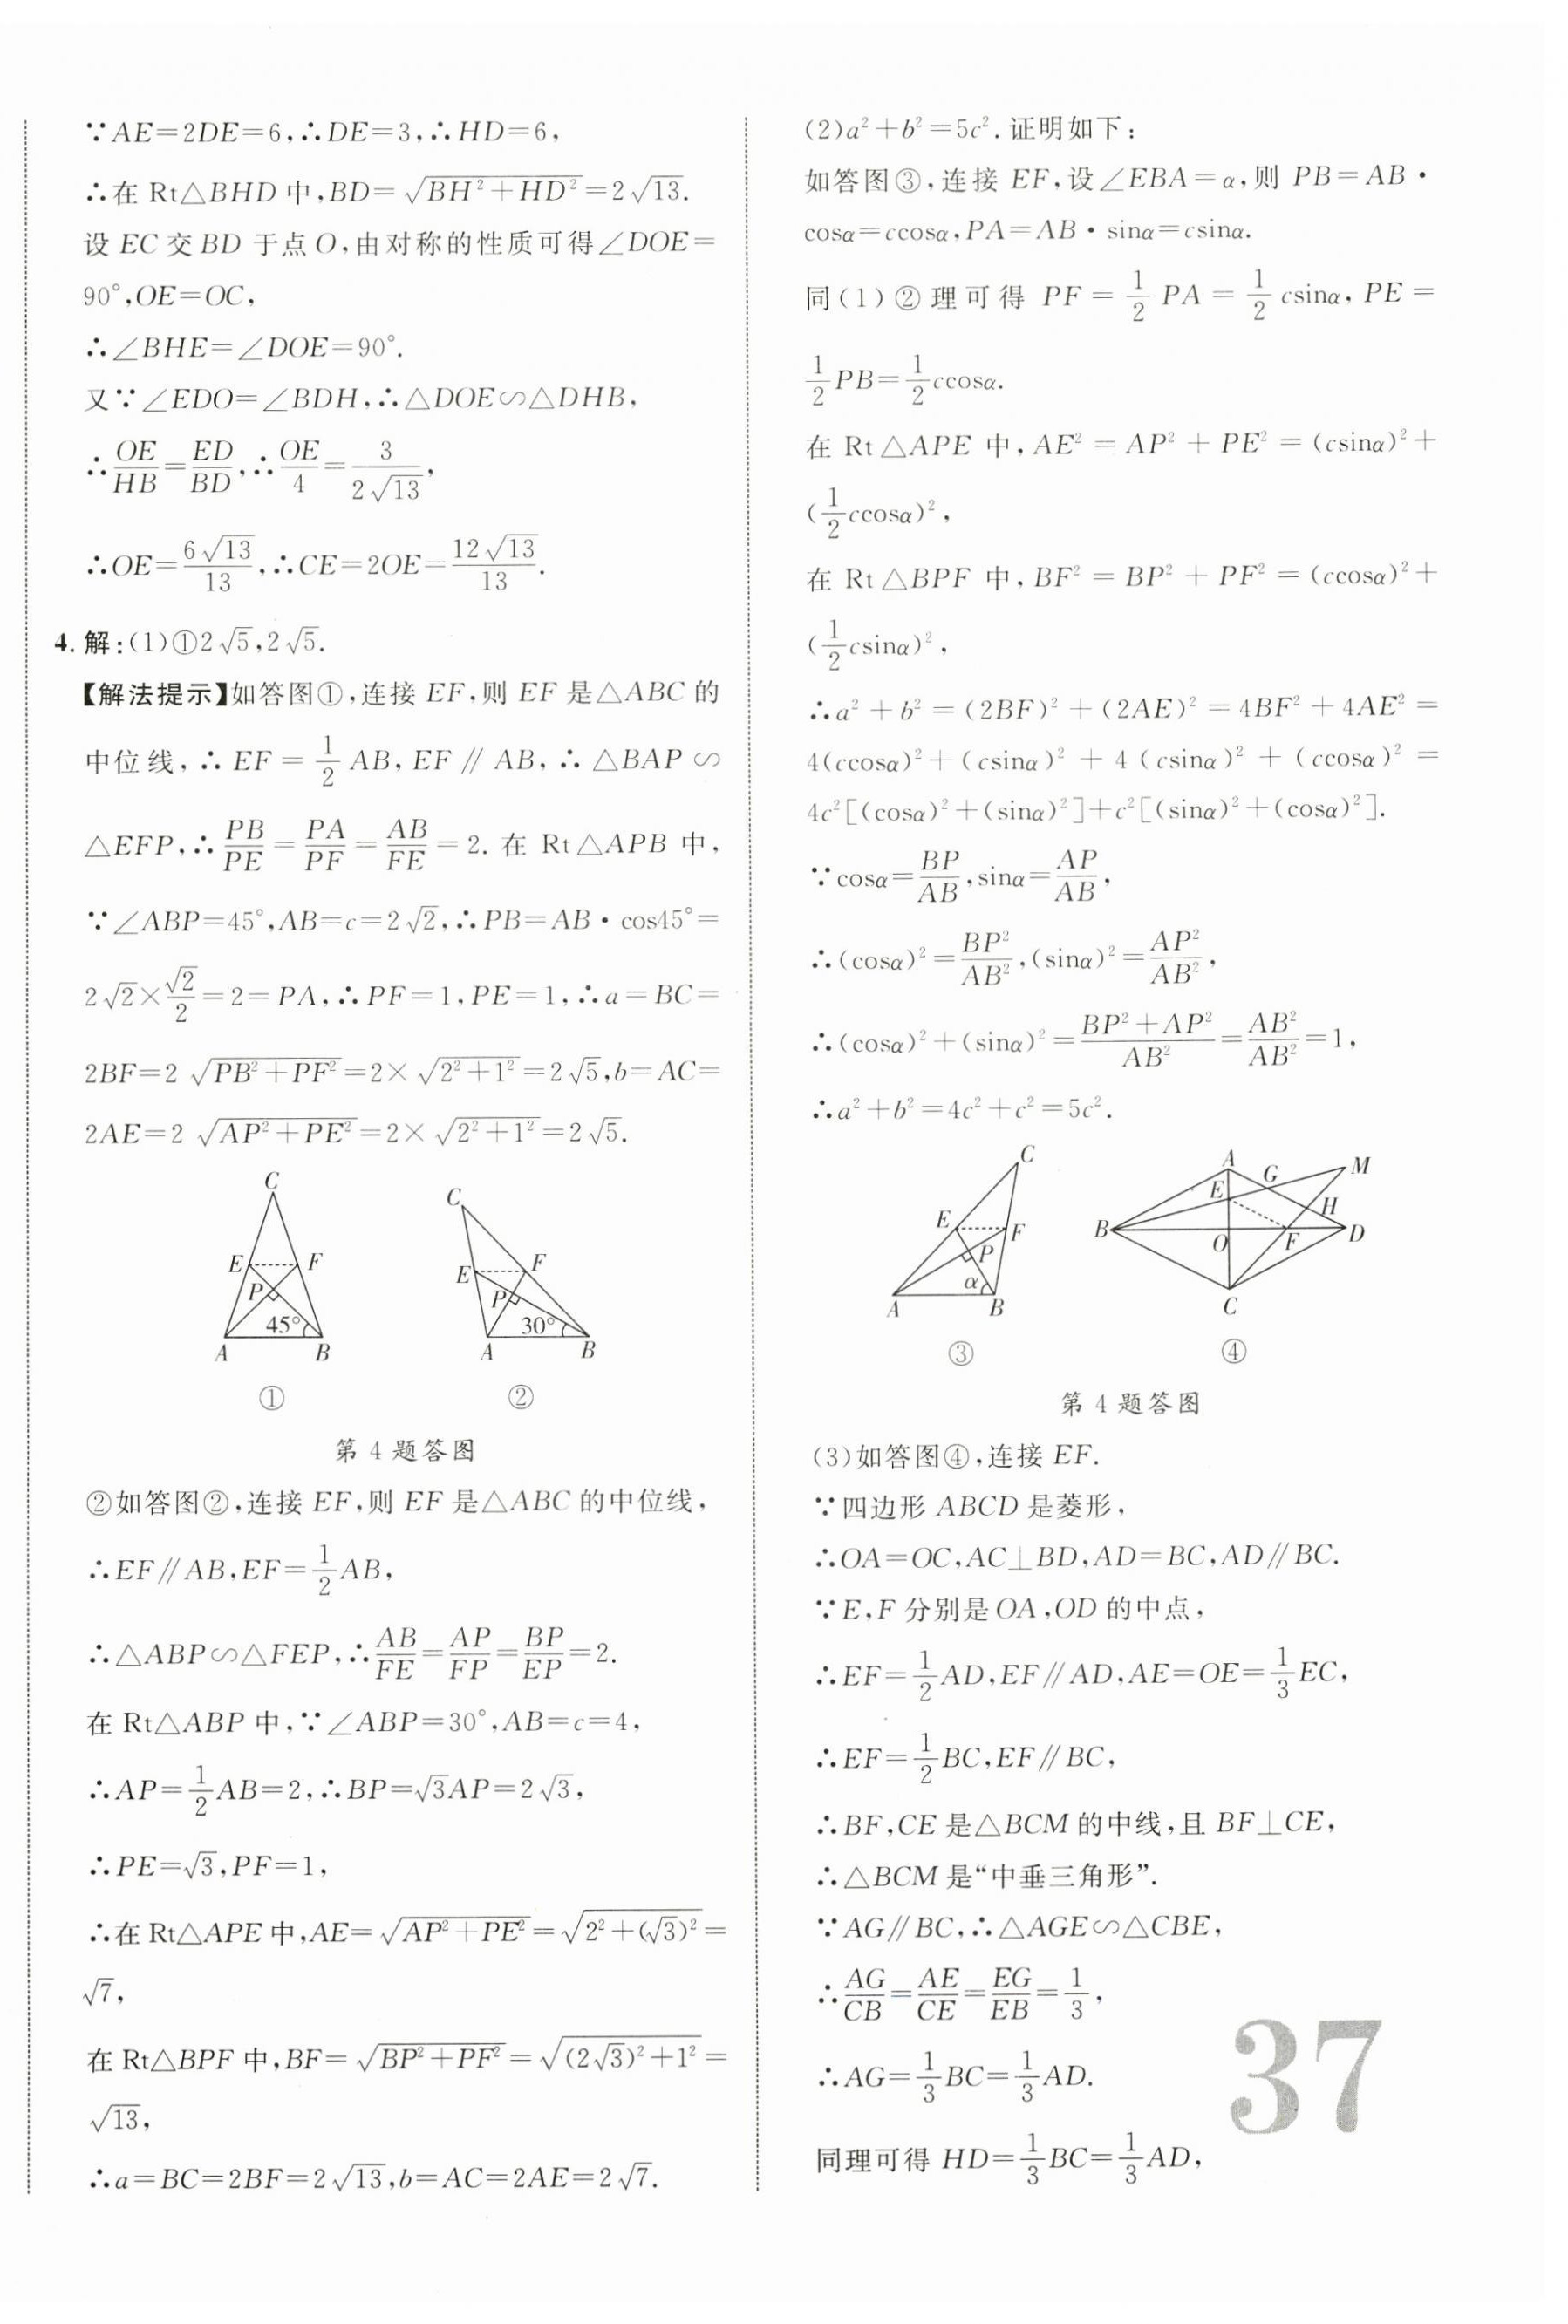 ∵AE=2DE=6,∴DE=3,∴HD=6,
∴在 Rt△BHD 中,BD=√(BH²+HD²)=2√13.
设 EC 交 BD 于点 O,由对称的性质可得∠DOE=
90°,OE=OC,
∴∠BHE=∠DOE=90°.
又∵∠EDO=∠BDH,∴△DOE∽△DHB,
∴OE/HB=ED/BD,∴OE/4=3/(2√13),
∴OE=6√13/13,∴CE=2OE=12√13/13.
4. 解:(1)①2√5,2√5.
【解法提示】如答图①,连接 EF,则 EF 是△ABC 的
中位线,∴EF=1/2 AB,EF∥AB,∴△BAP∽
△EFP,∴PB/PE=PA/PF=AB/FE=2. 在 Rt△APB 中,
∵∠ABP=45°,AB=c=2√2,∴PB=AB·cos45°=
2√2×√2/2=2=PA,∴PF=1,PE=1,∴a=BC=
2BF=2√(PB²+PF²)=2×√(2²+1²)=2√5,b=AC=
2AE=2√(AP²+PE²)=2×√(2²+1²)=2√5.
C
E
F
P
45°
A
B
①
C
E
F
P
30°
A
B
②
第 4 题答图
②如答图②,连接 EF,则 EF 是△ABC 的中位线,
∴EF∥AB,EF=1/2 AB,
∴△ABP∽△FEP,∴AB/FE=AP/FP=BP/EP=2.
在 Rt△ABP 中,∵∠ABP=30°,AB=c=4,
∴AP=1/2 AB=2,∴BP=√3AP=2√3,
∴PE=√3,PF=1,
∴在 Rt△APE 中,AE=√(AP²+PE²)=√(2²+(√3)²)=
√7,
在 Rt△BPF 中,BF=√(BP²+PF²)=√((2√3)²+1²)=
√13,
∴a=BC=2BF=2√13,b=AC=2AE=2√7.
(2)a²+b²=5c².证明如下:
如答图③,连接 EF,设∠EBA=α,则 PB=AB·
cosα=ccosα,PA=AB·sinα=csinα.
同(1)②理可得 PF=1/2 PA=1/2 csinα,PE=
1/2 PB=1/2 ccosα.
在 Rt△APE 中,AE²=AP²+PE²=(csinα)²+
(1/2 ccosα)²,
在 Rt△BPF 中,BF²=BP²+PF²=(ccosα)²+
(1/2 csinα)²,
∴a²+b²=(2BF)²+(2AE)²=4BF²+4AE²=
4(ccosα)²+(csinα)²+4(csinα)²+(ccosα)²=
4c²[(cosα)²+(sinα)²]+c²[(sinα)²+(cosα)²].
∵cosα=BP/AB,sinα=AP/AB,
∴(cosα)²=BP²/AB²,(sinα)²=AP²/AB²,
∴(cosα)²+(sinα)²=(BP²+AP²)/AB²=AB²/AB²=1,
∴a²+b²=4c²+c²=5c².
C
E
F
P
α
A
B
③
A
G
M
E
H
B
O
F
D
C
④
第 4 题答图
(3)如答图④,连接 EF.
∵四边形 ABCD 是菱形,
∴OA=OC,AC⊥BD,AD=BC,AD∥BC.
∵E,F 分别是OA,OD 的中点,
∴EF=1/2 AD,EF∥AD,AE=OE=1/3 EC,
∴EF=1/2 BC,EF∥BC,
∴BF,CE 是△BCM 的中线,且 BF⊥CE,
∴△BCM 是“中垂三角形”.
∵AG∥BC,∴△AGE∽△CBE,
∴AG/CB=AE/CE=EG/EB=1/3,
∴AG=1/3 BC=1/3 AD.
同理可得 HD=1/3 BC=1/3 AD,
37